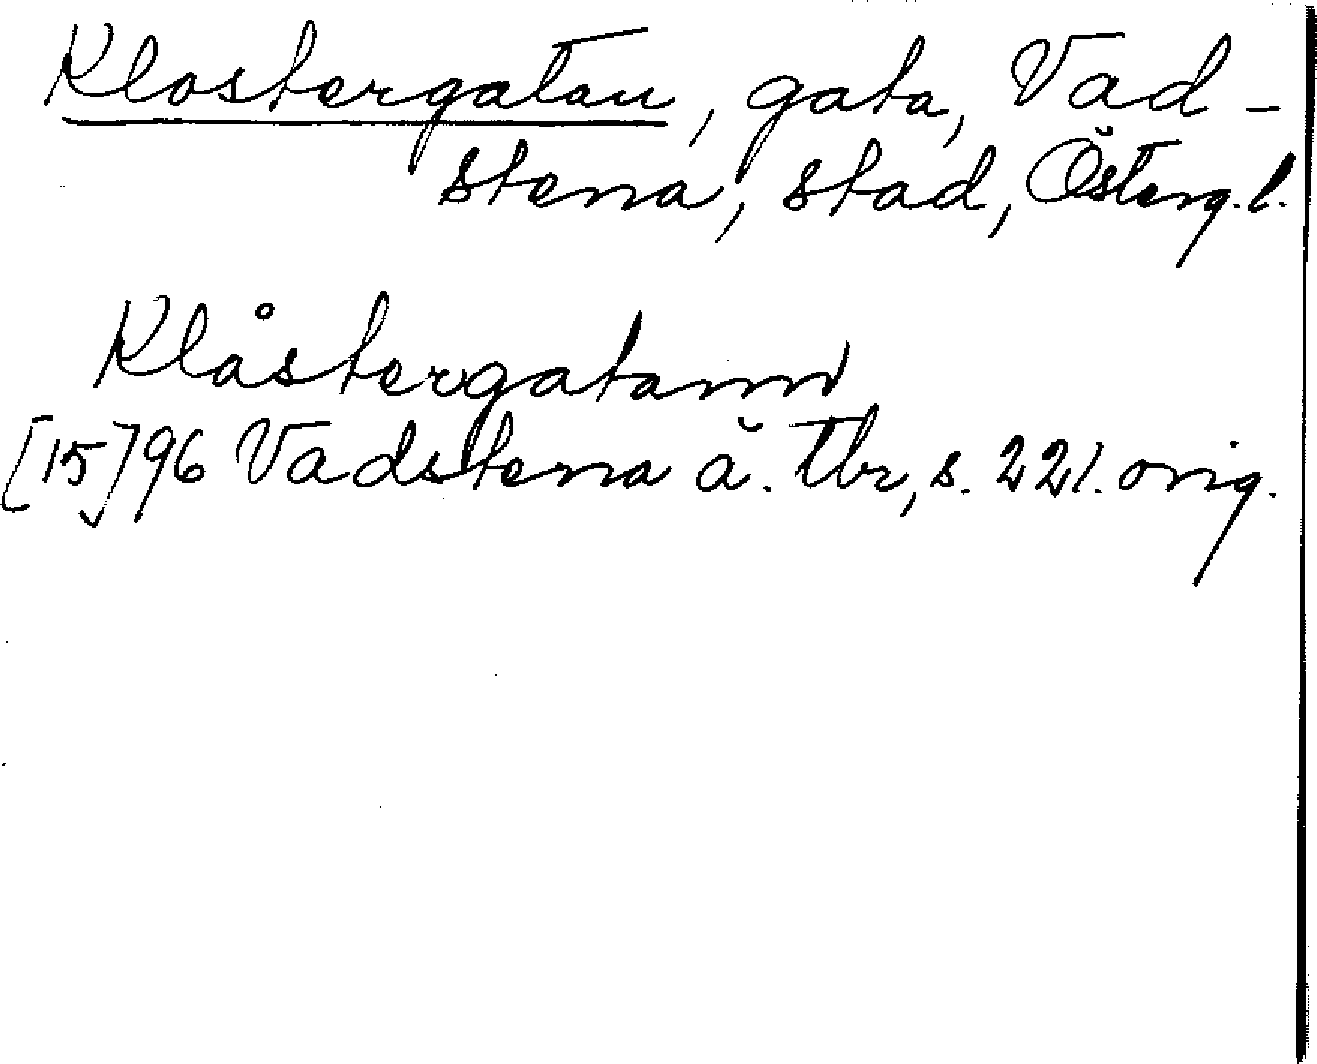 Klostergatan, gata, Vad-
stena, stad, Österg. l.
Klåstergatann
[15]96 Vadstena ä. tbr, s. 221. orig.